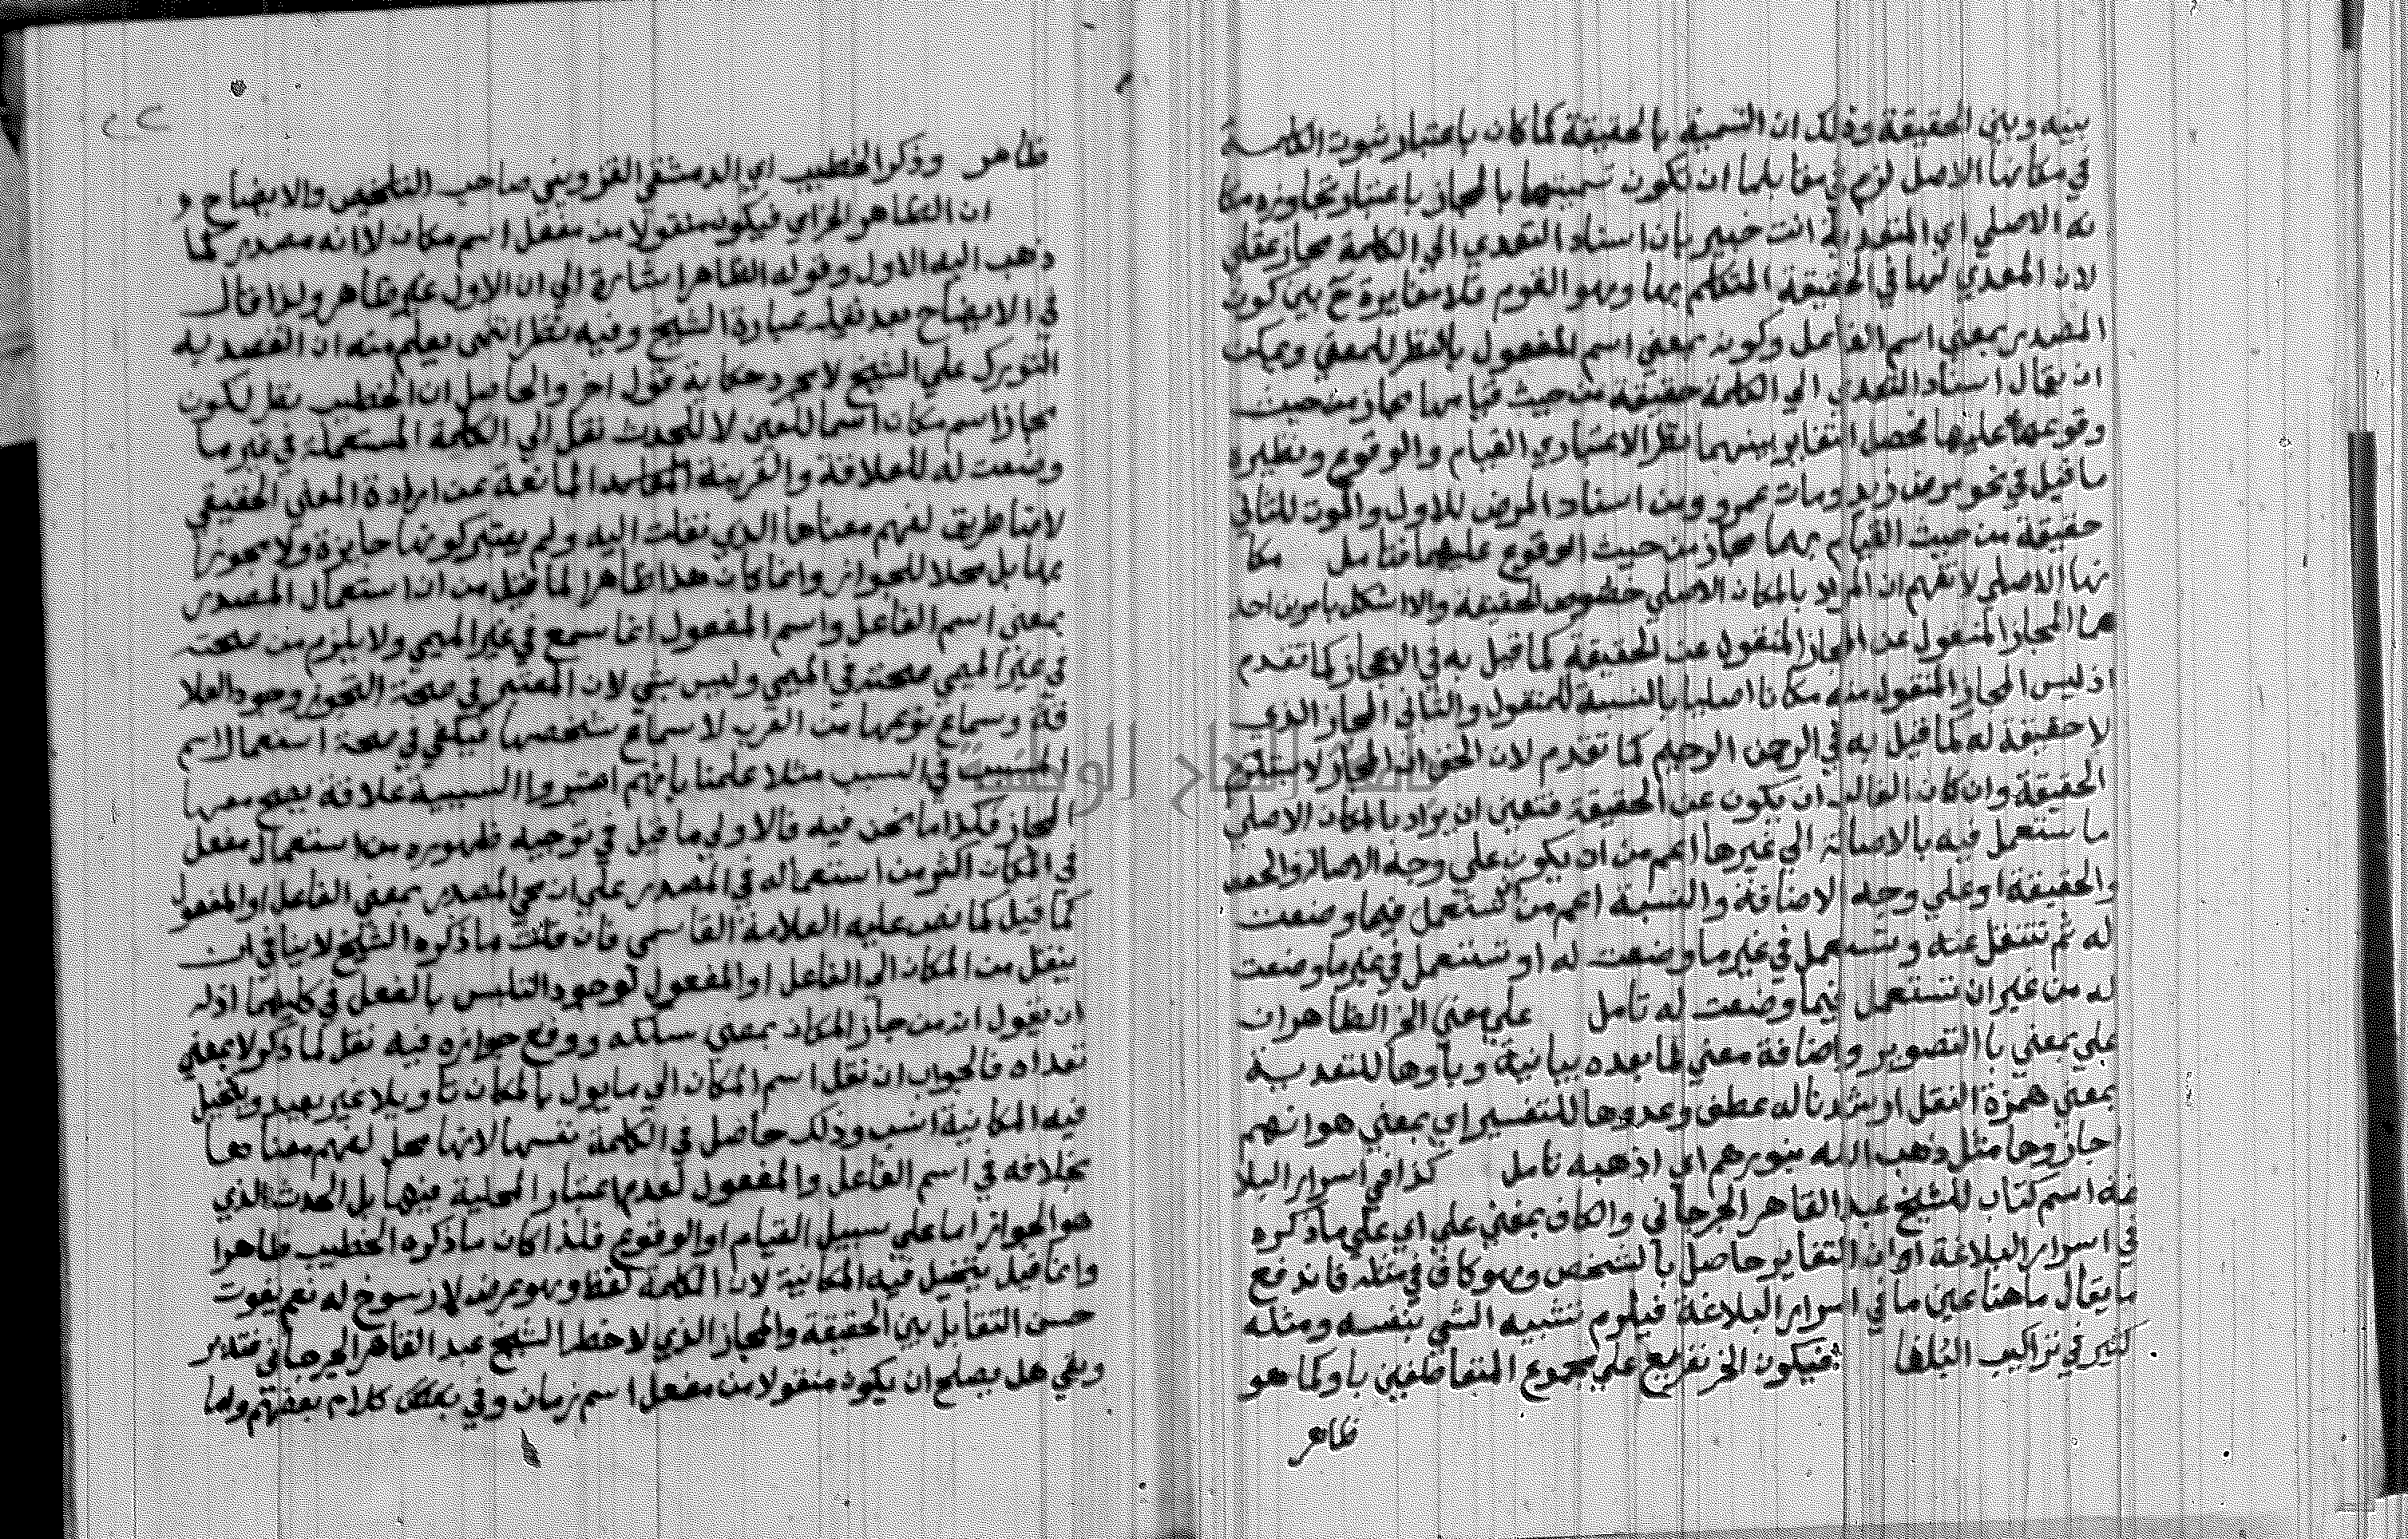 بينه وبين الحقيقة وذلك ان التسمية بالحقيقة كما كان باعتبار ثبوت الكلمة
في مكانها الاصل لزم في مقابلها ان تكون تسميتها بالمجاز باعتبار تجاوزه مكا
نه الاصلي اي المنقد انت خبير بان اسناد التعدي الي الكلمة مجاز عقلي
لان المعدي لها في الحقيقة المتكلم بها وهو القوم فلا مغايرة ح بين كون
المصدر بمعني اسم الفاعل وكونه بمعني اسم المفعول بالنظر للمعني ويمكن
ان يقال اسناد التعدي الي الكلمة حقيقة من حيث قيامها مجاز من حيث
وقوعها عليها فحصل التغاير بينهما نظرا لاعتباري القيام والوقوع ونظيره
ما قيل في نحو مرض زيد ومات عمرو ومن اسناد المرض للاول والموت للثاني
حقيقة من حيث القيام بهما مجاز من حيث الوقوع عليهما فتامل مكا
نها الاصلي لا تفهم ان المراد بالمكان الاصلي خصوص الحقيقة والا اشكل بامرين احد
هما المجاز المنقول عن المجاز المنقول عن الحقيقة كما قيل به في الايجاز كما تقدم
اذ ليس المجاز المنقول منه مكانا اصليا بالنسبة للمنقول والثاني المجاز الذي
لا حقيقة له كما قيل به في الرحمن الرحيم كما تقدم لان الحق ان المجاز لا يستلزم
الحقيقة وان كان الغالب ان يكون عن الحقيقة فتعين ان يراد بالمكان الاصلي
ما يستعمل فيه بالاصالة الي غيرها اعم من ان يكون علي وجه الاصالة
والحقيقة او علي وجه الاضافة والنسبة اعم من تستعمل فيما وضعت
له ثم تنتقل عنه وتستعمل في غير ما وضعت له او تستعمل في غير ما وضعت
له من غير ان تستعمل فيما وضعت له تامل علي معني الخ الظاهر ان
علي بمعني با التصوير واضافة معني لما بعده بيانية وباوها للتعدية
بمعني همزة النقل او عطف وعدوها للتفسير اي بمعني هو انهم
اجازوها مثل ذهب الله بنورهم اي اذهبه تامل كذا في اسرار البلا
غة اسم كتاب للشيخ عبد القاهر الجرجاني والكاف بمعني علي اي علي ما ذكره
في اسرار البلاغة او ان التغاير حاصل بالشخص وهو كاف في مثله فاندفع
ما يقال ما هنا عين ما في اسرار البلاغة فيلزم تشبيه الشي بنفسه ومثله
كثير في تراكيب البلغا فيكون الخ تفريع علي مجموع المتعاطفين باو كما هو
ظاهر
٢٢
ظاهر وذكر الخطيب اي الدمشقي القزويني صاحب التلخيص والايضاح و
ان الظاهر الخ اي فيكون منقولا من مفعل اسم مكان لا انه مصدر كما
ذهب اليه الاول وقوله الظاهر اشارة الي ان الاول غير ظاهر ولذا قال
في الايضاح بعد نقله عبارة الشيخ وفيه نظر انتهى يعلم منه ان القصد به
التورك علي الشيخ لا مجرد حكاية قول اخر والحاصل ان الخطيب نظر لكون
مجاز اسم مكان اسما للعين لا للحدث نقل الي الكلمة المستعملة في غير ما
وضعت له للعلاقة والقرينة المانعة عن ارادة المعني الحقيقي
لانها طريق لفهم معناها الذي نقلت اليه ولم يعتبر كونها جايزة ولا مجوزا
بها بل محلا للجواز وانما كان هذا ظاهرا لما قيل من ان استعمال المصدر
بمعني اسم الفاعل واسم المفعول انما سمع في غير الميمي ولا يلزم من صحته
في غير الميمي صحته في الميمي وليس بشي لان المعتبر في صحة التجوز وجود العلا
قة وسماع نوعها من العرب لا سماع شخصها فيكفي في صحة استعمال اسم
المسبب في السبب مثلا علمنا بانهم اعتبروا السببية علاقة يصح معها
المجاز فكذا ما نحن فيه فالاولي ما قيل في توجيه ظهوره من استعمال مفعل
في المكان اكثر من استعماله في المصدر علي ان مجي المصدر بمعني الفاعل او المفعول
كما قيل كما نص عليه العلامة القاسمي فان قلت ما ذكره الشيخ لا ينافي ان
ينقل من المكان الي الفاعل او المفعول لوجود التلبس بالفعل في كليهما اذ له
ان يقول ان من جاز المكان بمعني سلكه ووقع جوازه فيه نقل لما ذكر لا بمعني
تعداه فالجواب ان نقل اسم المكان الي ما يول بالمكان تاويلا غير بعيد ويتخيل
فيه المكانية انسب وذلك حاصل في الكلمة نفسها لانها محل لفهم معناها
بخلافه في اسم الفاعل والمفعول لعدم اعتبار المحلية فيهما بل الحدث الذي
هو الجواز اما علي سبيل القيام او الوقوع فلذا كان ما ذكره الخطيب ظاهرا
وانما قيل يتخيل فيه المكانية لان الكلمة لفظ وهو عرض لا رسوخ له نعم يفوت
حسن التقابل بين الحقيقة والمجاز الذي لاحظه الشيخ عبد القاهر الجرجاني فتدبر
وبقي هل يصلح ان يكون منقولا من مفعل اسم زمان وفي بعض كلام بعضهم واما